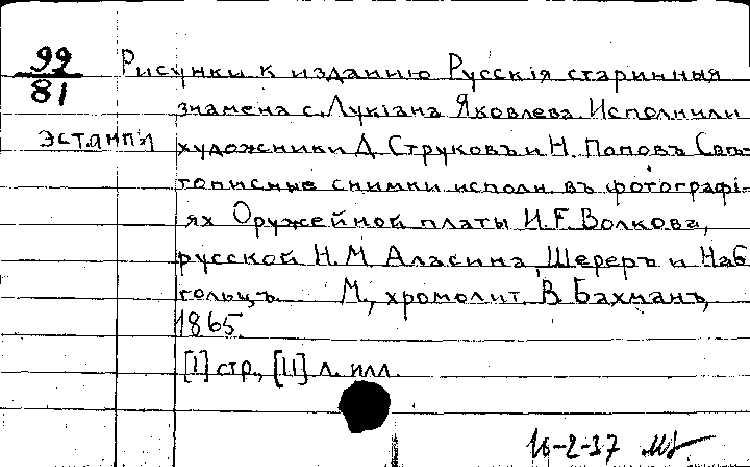 99
81
эстампы
Рисунки к изданию Русскія старинныя
знамена с. Лукіана Яковлева. Исполнили
художники Д. Струковъ и Н. Поповъ Свѣ-
тописные снимки исполн. въ фотографі-
ях Оружейной платы И.F. Волкова,
русской Н. М. Аласина, Шереръ и Наб
гольцъ. М., хромолит. В. Бахманъ,
1865.
[1] стр., [11] л. илл.
16-2-37